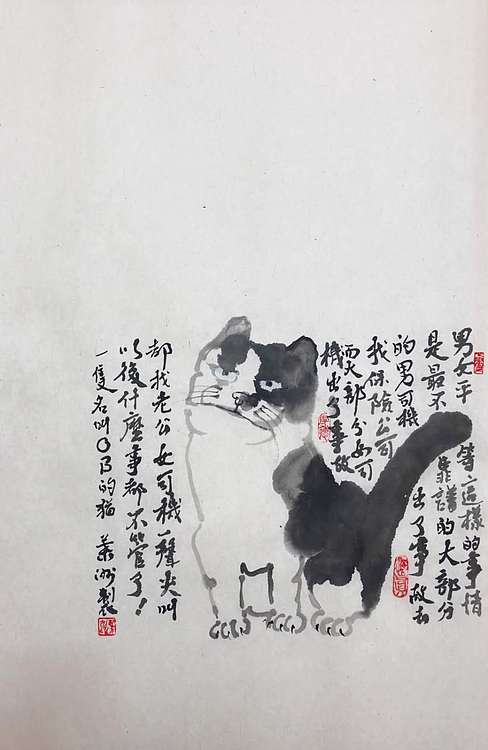 男女平等這樣的事情
是最不靠譜的大部分
的男司機出了事故去
找保險公司
而大部分女司
機出了事故
都找老公女司機一聲尖叫
以後什麼事都不管了！
一隻名叫的猫
製